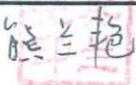 熊兰艳